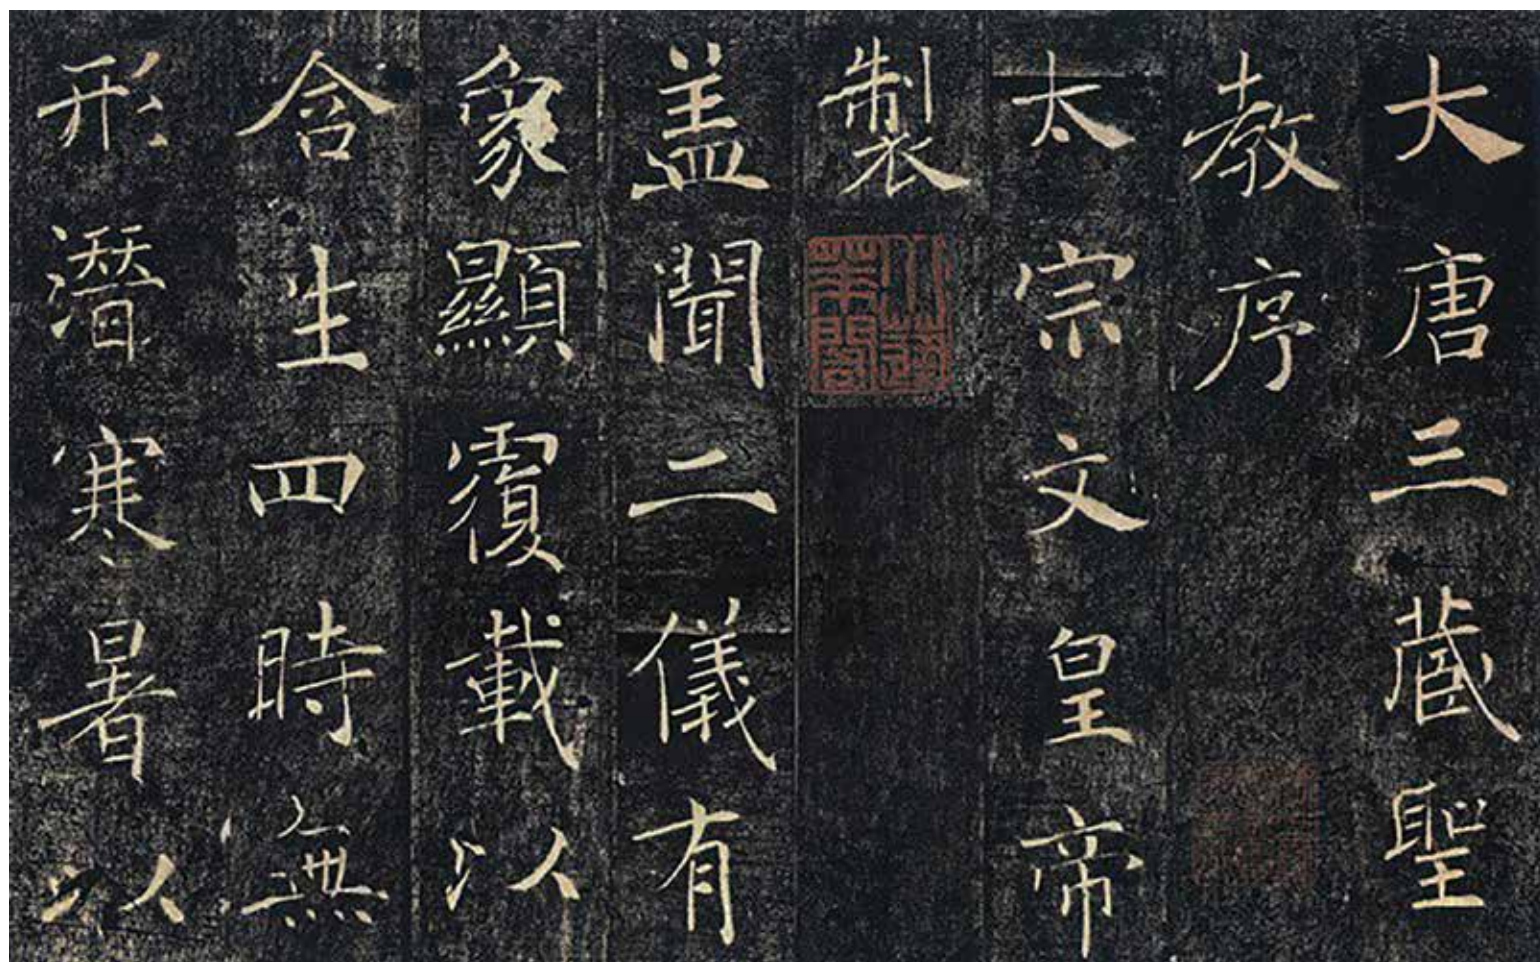 大唐三藏聖
教序
太宗文皇帝
製
小蓬
萊閣
盖聞二儀有
象顯覆載以
含生四時無
形潛寒暑以